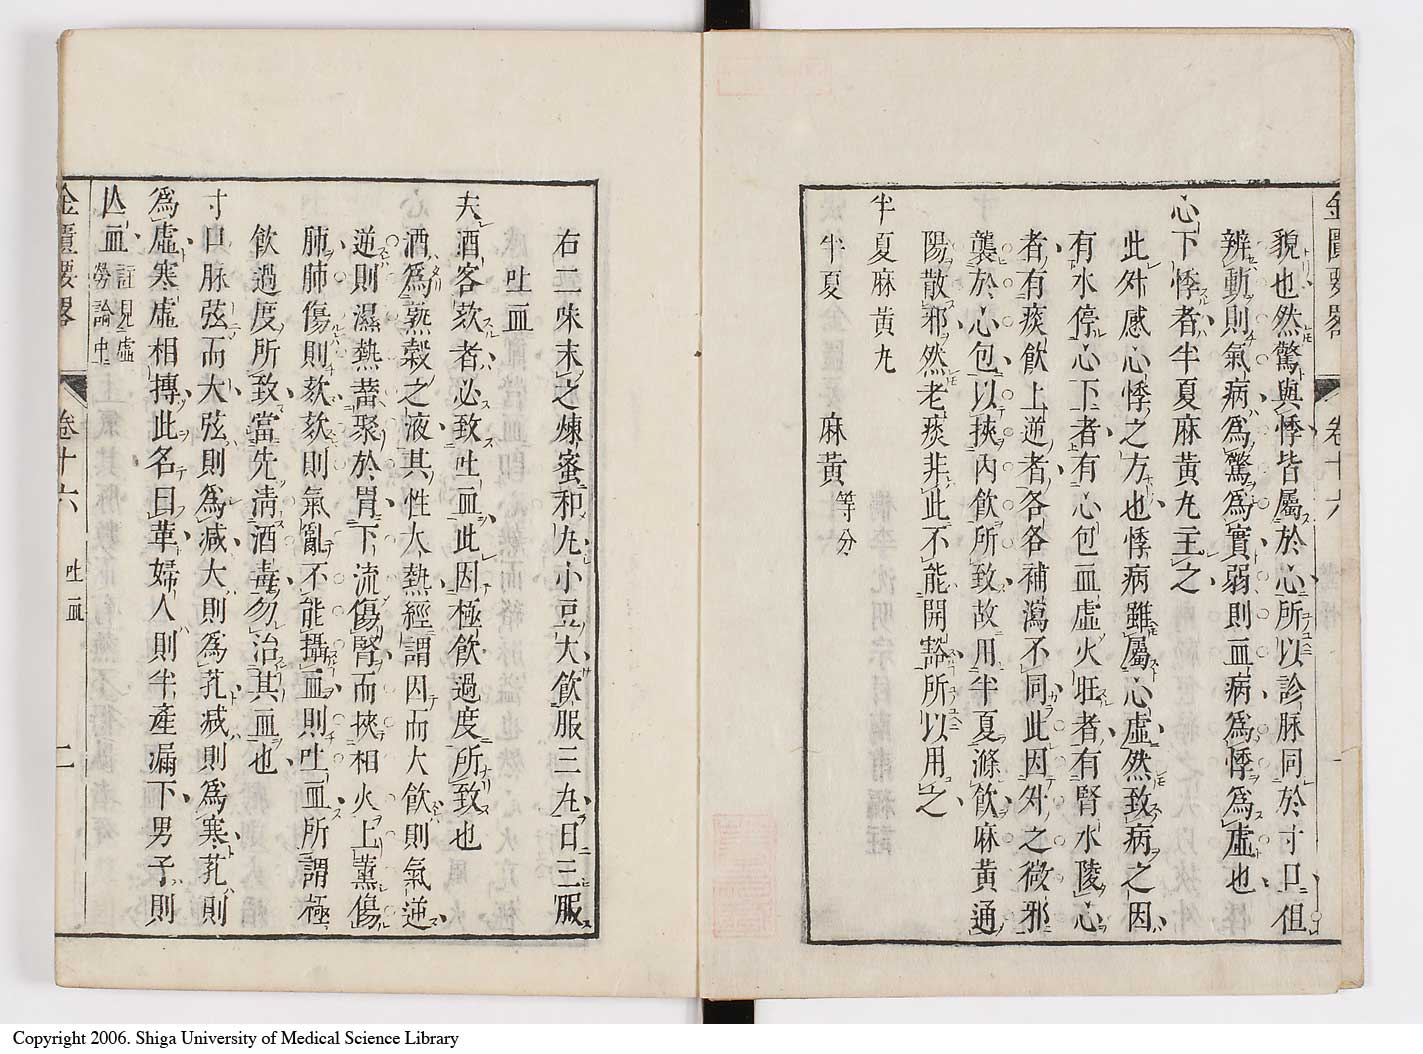 金匱要畧 卷十六
貌也然驚與悸皆屬於心所以診脉同於寸口但
辨動則氣病爲驚爲實弱則血病爲悸爲虛也
心下悸者半夏麻黃丸主之
此外感心悸之方也悸病雖屬心虛然致病之因
有水停心下者有心包血虛火旺者有腎水陵心
者有痰飲上逆者各各補瀉不同此因外之微邪
襲於心包以挾內飲所致故用半夏滌飲麻黃通
陽散邪然老痰非此不能開豁所以用之
半夏麻黃丸
半夏 麻黃等分
右二味末之煉蜜和丸小豆大飲服三丸日三服
吐血
夫酒客欬者必致吐血此因極飲過度所致也
酒爲蒸穀之液其性大熱經謂因而大飲則氣逆
逆則濕熱蓄聚於胃下流傷腎而挾相火上薰傷
肺肺傷則欬欬則氣亂不能攝血則吐血所謂極
飲過度所致當先淸酒毒勿治其血也
寸口脉弦而大弦則爲减大則爲芤减則爲寒芤則
爲虛寒虛相摶此名曰革婦人則半產漏下男子則
亾血註見虛勞論中
金匱要畧 卷十六 吐血 二
Copyright 2006. Shiga University of Medical Science Library